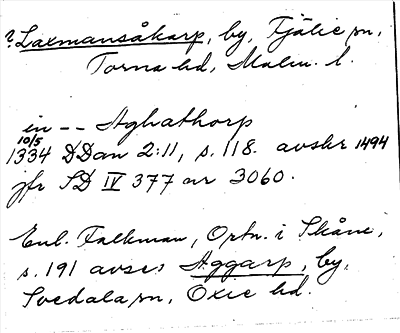 ? Laxmansåkarp, by, Fjälie sn,
Torna hd, Malm. l.
in -- Aghathorp
10/5
1334 DDan 2:11, s. 118. avskr 1494
jfr SD IV 377 nr 3060.
Enl. Falkman, Ortn. i Skåne,
s. 191 avses Aggarp, by,
Svedala sn, Oxie hd.